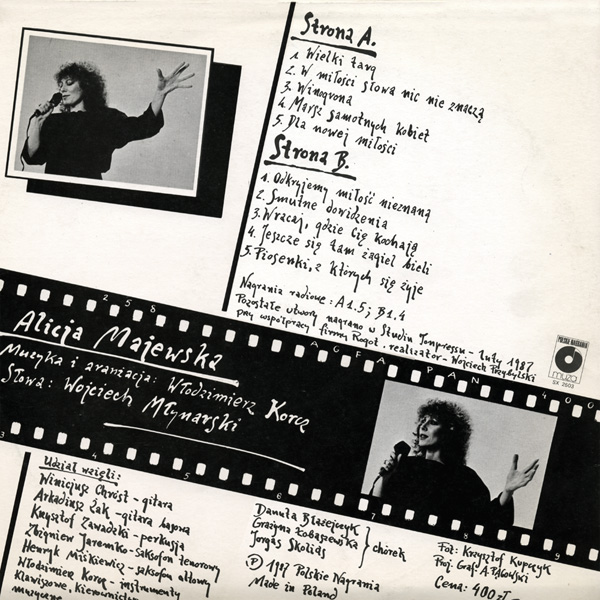 Strona A.
1. Wielki targ
2. W miłości słowa nic nie znaczą
3. Winogrona
4. Marsz samotnych kobiet
5. Dla nowej miłości
Strona B.
1. Odkryjemy miłość nieznaną
2. Smutne dowidzenia
3. Wracaj, gdzie Cię kochają
4. Jeszcze się tam żagiel bieli
5. Piosenki, z których się żyje
Nagrania radiowe: A1.5; B1.4
Pozostałe utwory nagrano w Studiu Tonpressu - luty 1987
przy współpracy firmy Rogot. realizator - Wojciech Przybylski
258
AGFA PAN 400
POLSKIE NAGRANIA
muza
SX 2503
Alicja Majewska
Muzyka i aranżacja: Włodzimierz Korcz
Słowa: Wojciech Młynarski
3 4 5 6 7 8 9
Udział wzięli:
Winicjusz Chróst - gitara
Arkadiusz Żak - gitara basowa
Krzysztof Zawadzki - perkusja
Zbigniew Jaremko - saksofon tenorowy
Henryk Miśkiewicz - saksofon altowy
Włodzimierz Korcz - instrumenty
klawiszowe, kierownictwo
muzyczne
Danuta Błażejczyk
Grażyna Łobaszewska
Jorgos Skolias
chórek
Ⓟ 1987 Polskie Nagrania
Made in Poland
Fot. Krzysztof Kuperyk
Proj. Graf: A. Pągowski
Cena: 400 zł